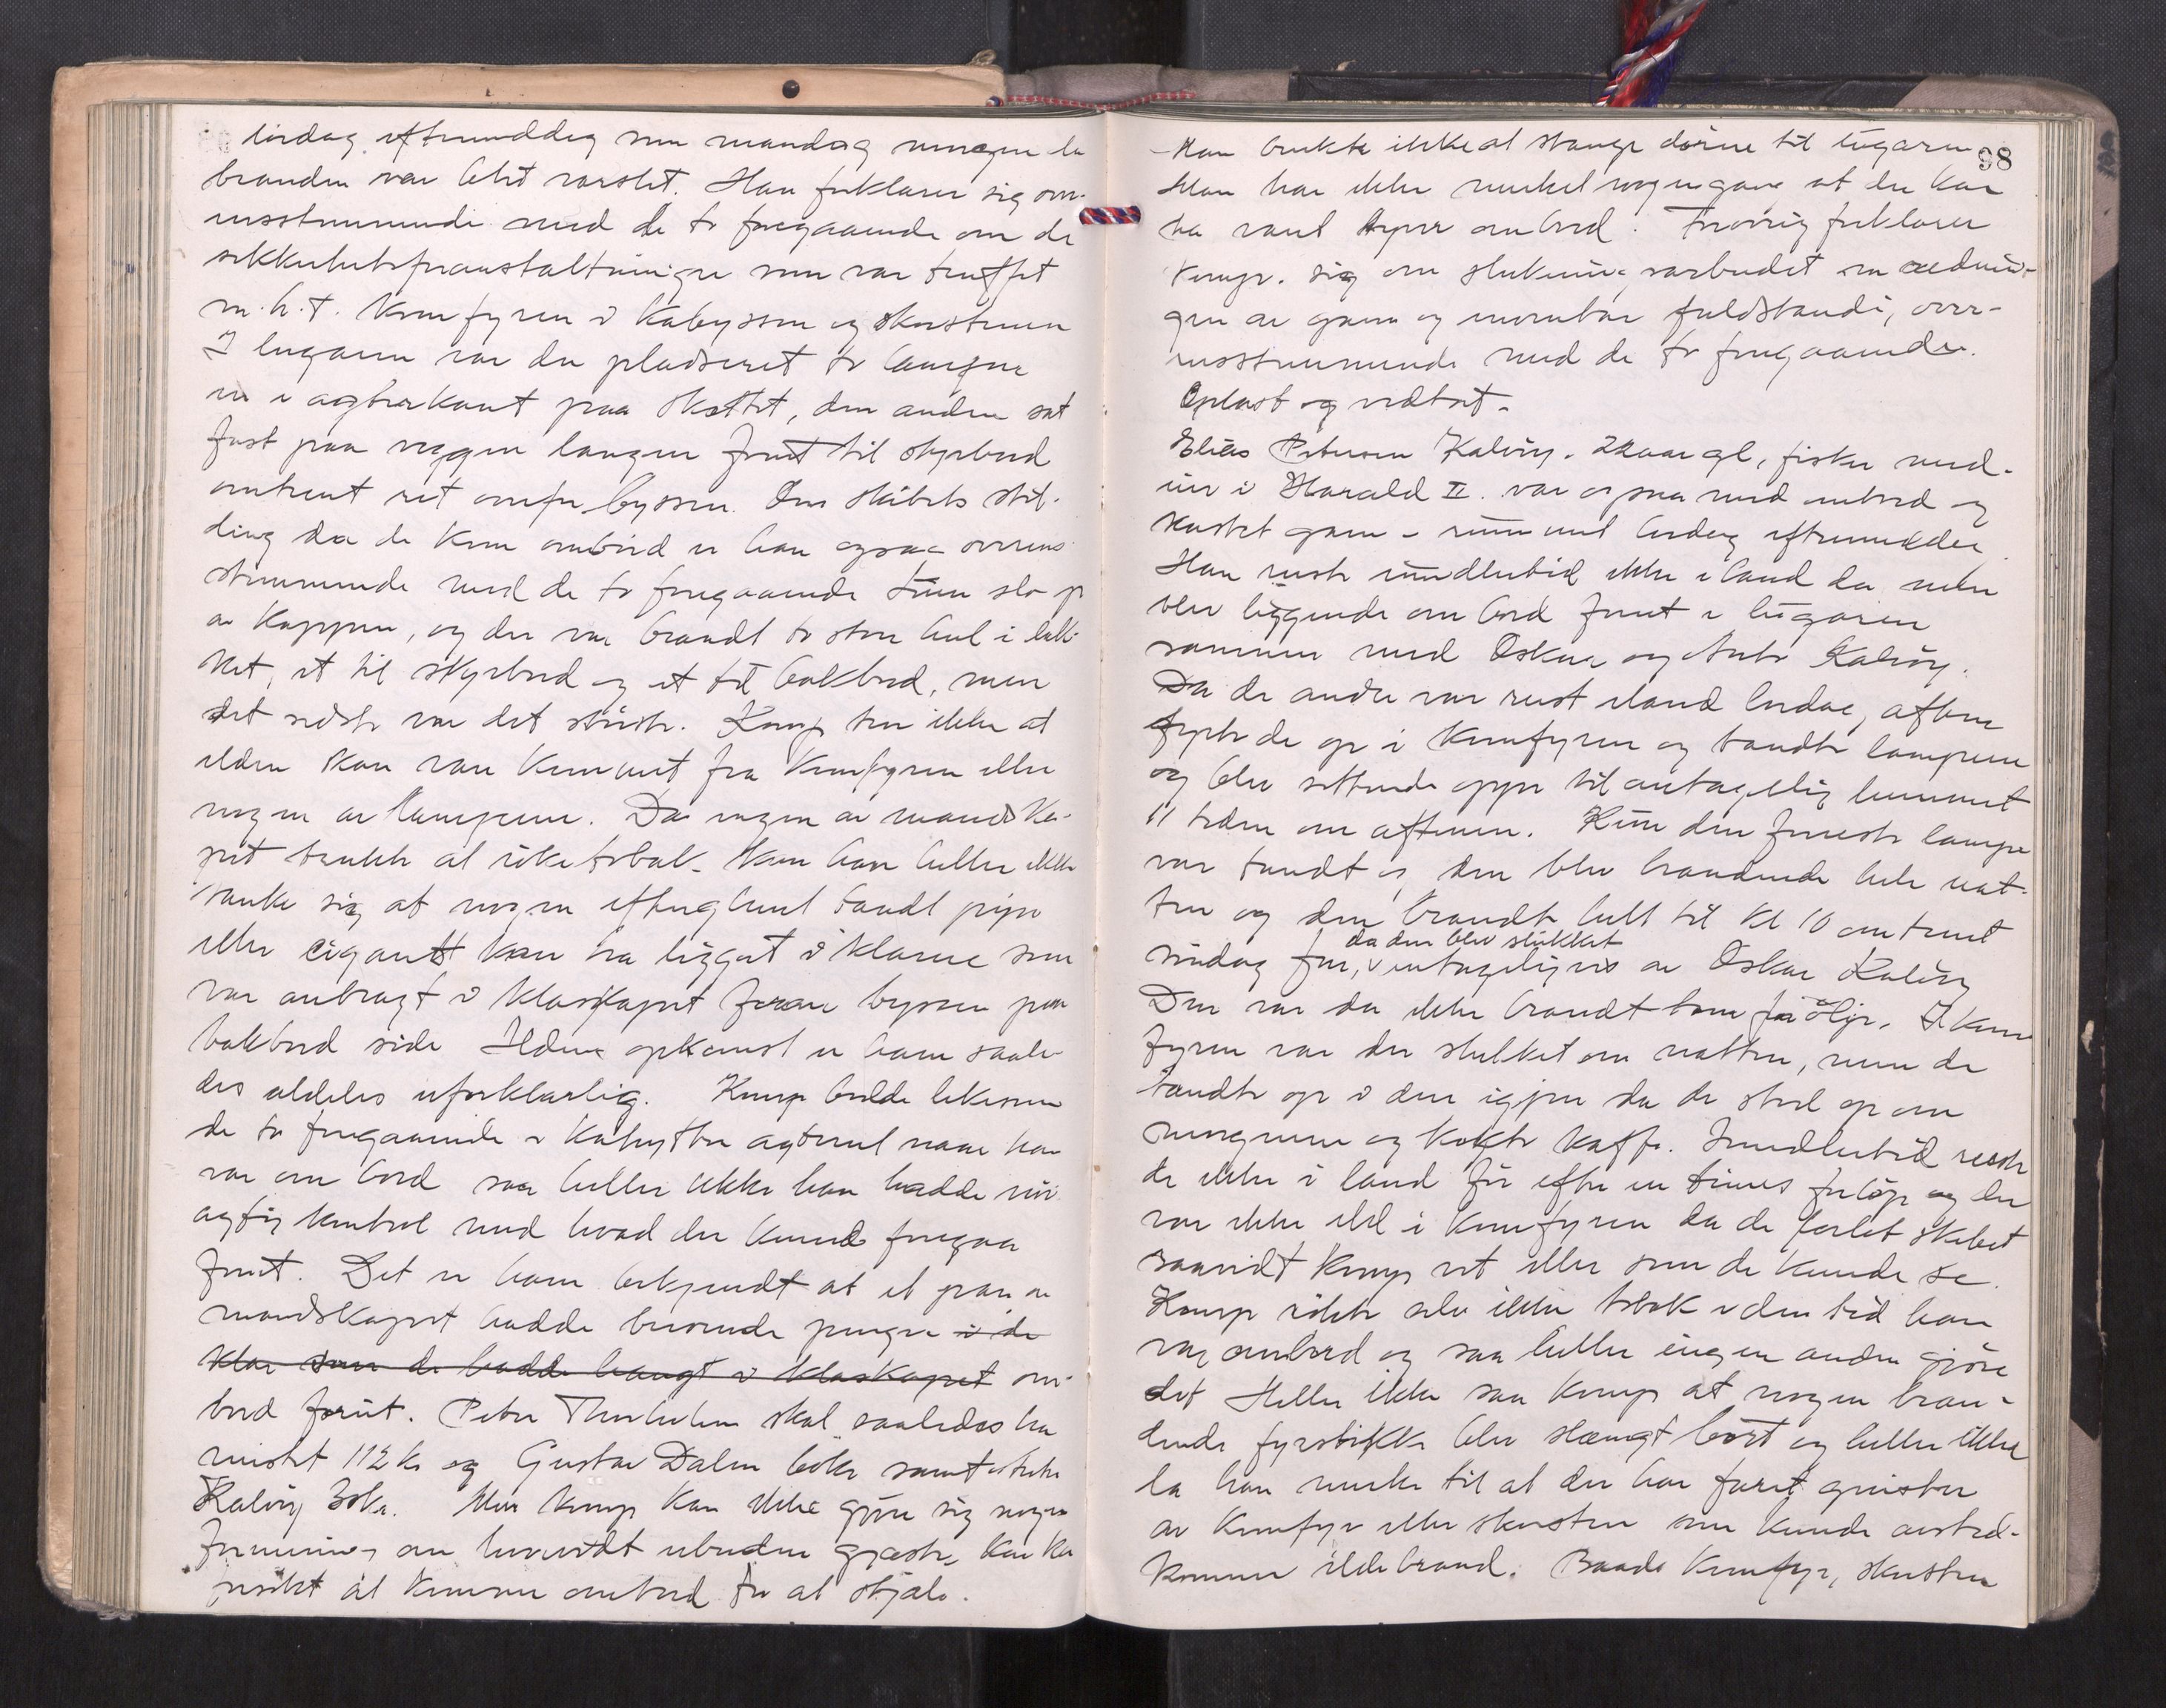 lördag eftermiddag som mandag morgen da
branden var blit varslet. Han forklarer sig over-
ensstemmende med de to foregaaende om de
sikkerhetsforanstaltninger som var truffet
m.h.t. komfyren i kabyssen og skorstenen
I lugaren var der pladseret to lamper
en i agterkant paa skottet, den anden sat
fast paa veggen længer forut til styrbord
omtrent ret overfor byssen. Om skibets stil-
ling da de kom ombord er han ogsaa overens
stemmende med de to foregaaende
av kappen, og der var brændt to store hul i dæk-
ket, et til styrbord og et til bakbord, men
det sidste var det störste. Komp tror ikke at
ilden kan være kommet fra komfyren eller
nogen av lamperne. Da ingen av mandska-
pet brukte at röke tobak kan han heller ikke
tænke sig at nogen efterglemt tændt pipe
eller cigarett kan ha ligget i klærne som
var anbragt i klæskapet foran byssen paa
bakbord side Ildens opkomst er ham saale-
des aldeles uforklarlig. Komp bodde likesom
de to foregaaende i kahytten agterut naar han
var om bord saa heller ikke han hadde nöi-
agtig kontrol med hvad der kunde foregaa
forut. Det er ham bekjendt at et par av
mandskapet hadde beroende penger i de
klær som de hadde hængt i klæskapet om-
bord forut. Peter skal saaledes ha
mistet 112 kr og Gustav Dalen samt
Kalvöy kr. Men komp kan ikke gjöre sig nogen
formening om hvorvidt ubudne gjæster kan ha
prövet at komme ombord for at stjæle.
98
Man brukte ikke at stænge dörene til lugaren
Han har ikke merket nogengang at der har
ha været tyver ombord. Forövrig forklarer
komp. sig om slukningsarbeidet
av garn og inventar fuldstændig over-
ensstemmende med de to foregaaende.
Oplæst og vedtat.
Elias Petersen Kalvöy. 22 aar gl, fisker med-
eier i Harald II. var ogsaa med ombord og
kastet garn i rummet lördag eftermiddag
Han reiste imidlertid ikke i land da men
blev liggende om bord forut i lugaren
sammen med Oskar og Kalvöy.
Da de andre var reist iland lördag aften
fyrte de op i komfyren og tændte lamperne
og blev sittende oppe til antagelig henimot
11 tiden om aftenen. Kun den foreste lampe
var tændt og den blev brændende hele nat-
ten og den brændte helt til kl 10 omtrent
da den blev slukket
söndag form, antageligvis av Oskar Kalvöy
Den var da ikke brændt tom for olje. I kom
fyren var der slukket om natten, men de
tændte op i den igjen da de stod op om
morgenen og kokte kaffe. Imidlertid reiste
de ikke i land för efter en times forlöp og der
var ikke ild i komfyren da de forlot skibet
saavidt komp vet eller som de kunde se.
Komp rökte selv ikke tobak i den tid han
var ombord og saa heller ingen anden gjöre
det Heller ikke saa komp at nogen bræn-
dende fyrstikke blev slængt bort og heller ikke
la han merke til at der har faret gnister
av komfyr eller skorsten som kunde avsted-
komme ildebrand. Baade komfyr, skorsten